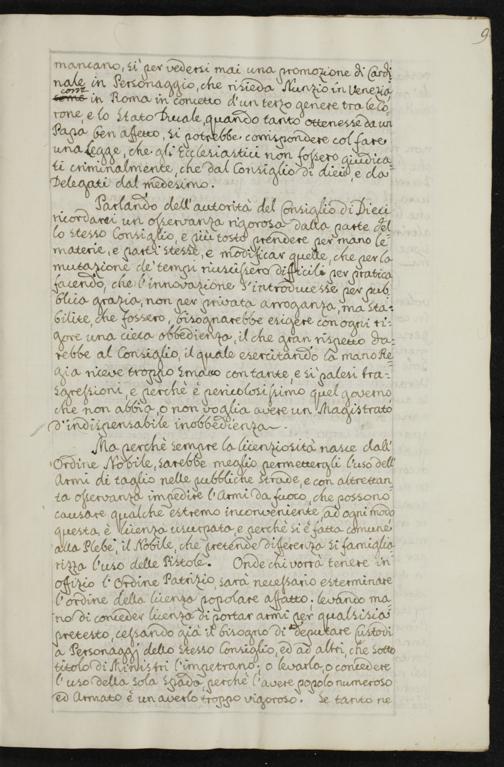 9
mancano, si per vedersi mai una promozione di Cardi
nale in Personaggio, che risieda Nunzio in Venezia
come in Roma in concetto d'un terzo genere tra le Co
rone, e lo Stato Ducale, quando tanto ottenesse da un
Papa ben affetto, si potrebbe corrispondere col fare
una Legge, che gli Ecclesiastici non fossero giudica
ti criminalmente, che dal Consiglio di dieci, e da
Delegati dal medesimo.
Parlando dell'autorità del Consiglio di Dieci
ricordarei un osservanza rigorosa dalla parte del
lo stesso Consiglio, e più tosto prendere per mano le
materie, e parti stesse, e modificar quelle, che per la
mutazione de' tempi riuscissero difficili per pratica
facendo, che l'innovazione s'introducesse per pub
blica grazia, non per privata arroganza, ma sta
bilite, che fossero, bisognarebbe esigere con ogni ri
gore una cieca obbedienza, il che gran rispetto da
rebbe al Consiglio, il quale esercitando la mano Re
gia riceve troppo smaco con tante, e si palesi tra
sgressioni, e perchè è pericolosissimo quel governo
che non abbia, o non voglia avere un Magistrato
d'indispensabile inobbedienza.
Ma perchè sempre la licenziosità nasce dall'
Ordine Nobile, sarebbe meglio permettergli l'uso dell'
Armi di taglio nelle pubbliche strade, e con altrettan
ta osservanza impedire l'Armi da fuoco, che possono
causare qualche estremo inconveniente ad ogni modo
questa, è licenza usurpata e perchè si è fatta comune
alla Plebe, il Nobile, che pretende diferenza si famiglia
rizza l'uso delle Pistole. Onde chi vorrà tenere in
offizio l'Ordine Patrizio, sarà necessario esterminare
l'ordine della licenza popolare affatto; levando ma
no di conceder licenza di portar armi per qualsisia
pretesto, cessando già il bisogno di deputare Custodi
a Personaggi dello stesso Consiglio, ed ad altri, che sotto
titolo di Ministri l'impetrano; o levarla, o concedere
l'uso della sola Spada, perchè l'avere popolo numeroso
ed Armato è un averlo troppo vigoroso. Se tanto ne